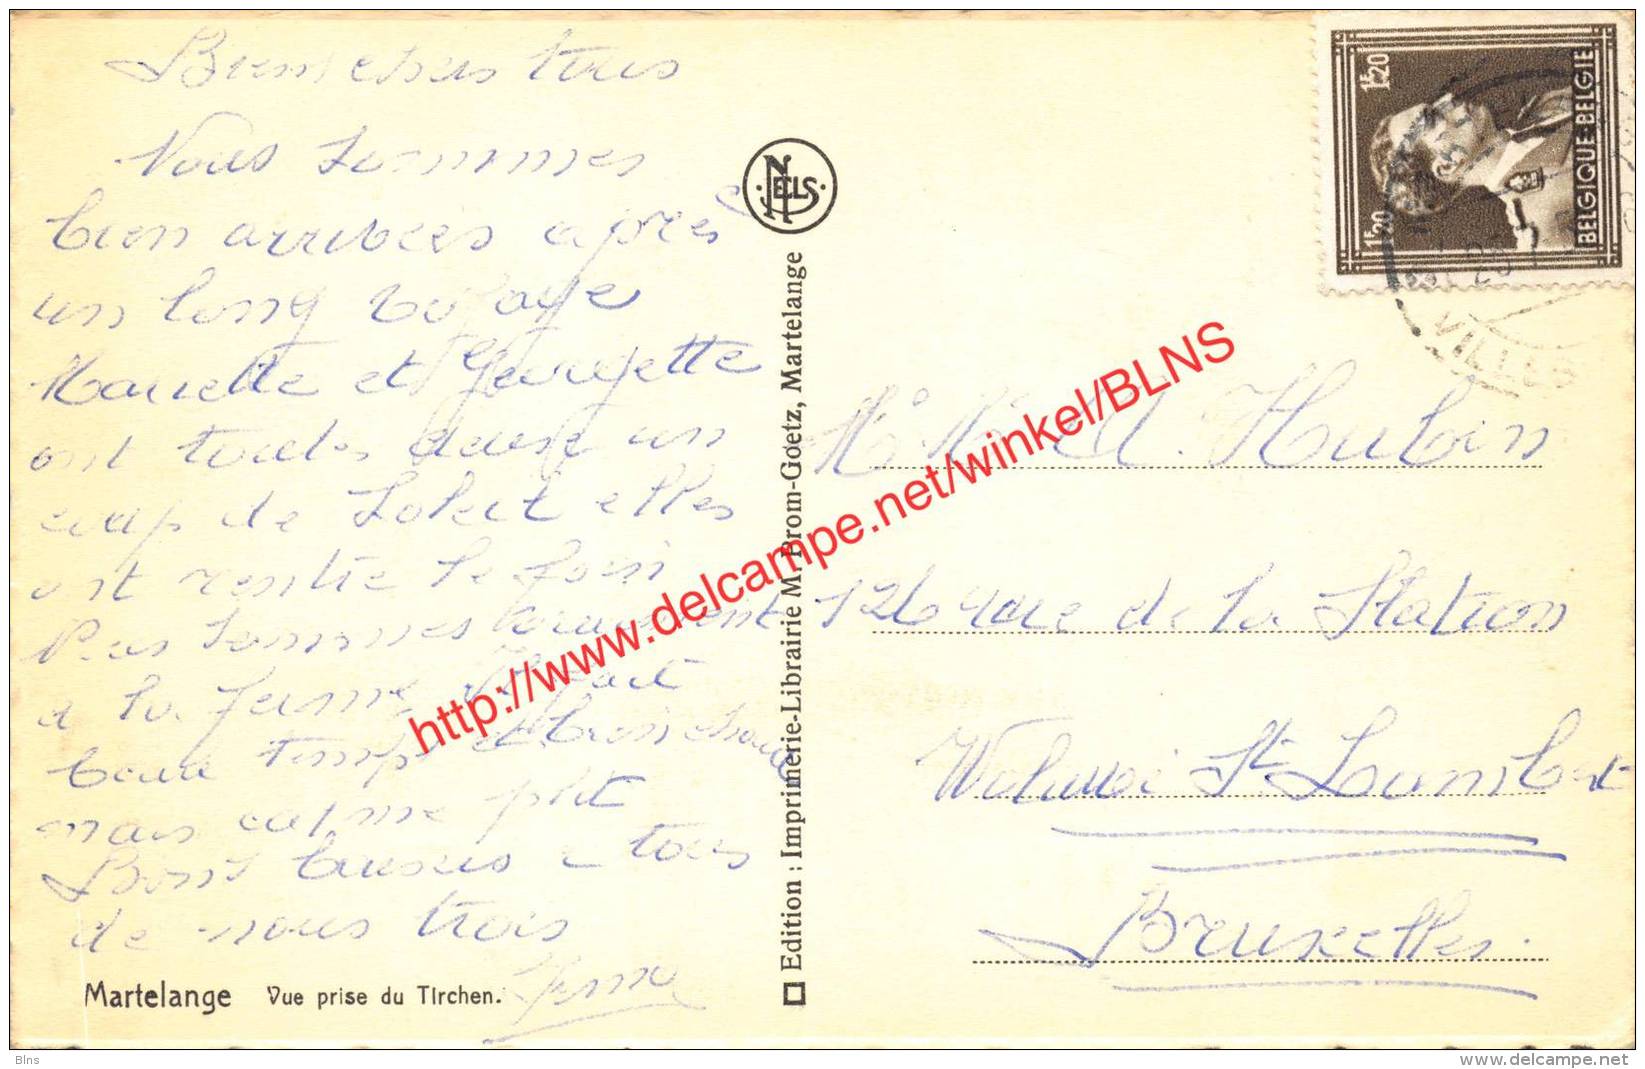 Biens chers tous
Nous sommes
bien arrivées après
un long voyage
Mariette et Georgette
ont toutes deux un
coup de Soleil elles
ont rentré le foin
Nous sommes vraiment
à la ferme Il fait
beau temps et bien chaud
mais calme
Bons baisers a tous
de nous trois
Martelange Vue prise du Tirchen.
NELS
Edition : Imprimerie-Librairie M. Brom-Goetz, Martelange
BELGIQUE-BELGIE
1F20
1F20
Mr Me A. Hubin
126 rue de la Station
Woluwé St Lambert
Bruxelles.
http://www.delcampe.net/winkel/BLNS
Blns
www.delcampe.net